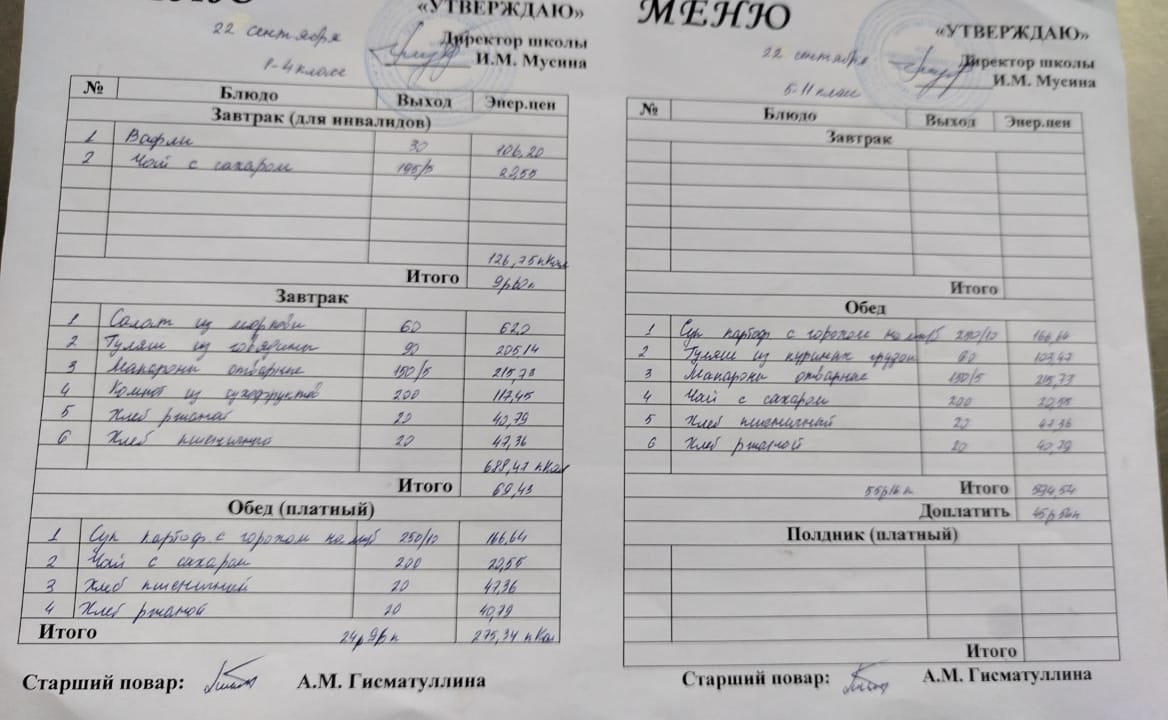 МЕНЮ
«УТВЕРЖДАЮ»
22 сентября
Директор школы
И.М. Мусина
1-4 класс
№ Блюдо Выход Энер.цен
Завтрак (для инвалидов)
1 Вафли 30 106,20
2 Чай с сахаром 195/5 20,55
126,75 кКал
Итого
Завтрак
1 Салат из моркови 60 620
2 Гуляш из говядины 90 205,14
3 Макароны отварные 150/5 215,73
4 Компот из сухофруктов 200 117,45
5 Хлеб ржаной 20 40,79
6 Хлеб пшеничный 20 47,36
688,47 кКал
Итого 69,43
Обед (платный)
1 Суп картоф с горохом на м/б 250/10 166,64
2 Чай с сахаром 200 20,55
3 Хлеб пшеничный 20 47,36
4 Хлеб ржаной 20 40,79
Итого 24р 96к 275,34 кКал
Старший повар: А.М. Гисматуллина
МЕНЮ
«УТВЕРЖДАЮ»
22 сентября
Директор школы
И.М. Мусина
5-11 класс
№ Блюдо Выход Энер.цен
Завтрак
Итого
Обед
1 Суп картоф с горохом на м/б 250/10 166,64
2 Гуляш из куриных грудок 60 103,47
3 Макароны отварные 150/5 215,73
4 Чай с сахаром 200 20,55
5 Хлеб пшеничный 20 47,36
6 Хлеб ржаной 20 40,79
55р16к Итого 594,54
Доплатить 45р54к
Полдник (платный)
Итого
Старший повар: А.М. Гисматуллина